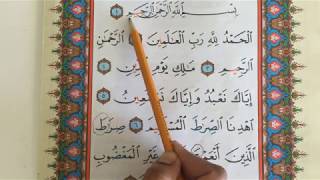 بِسْمِ ٱللَّهِ ٱلرَّحْمَٰنِ ٱلرَّحِيمِ ١
ٱلْحَمْدُ لِلَّهِ رَبِّ ٱلْعَٰلَمِينَ ٱلرَّحْمَٰنِ
ٱلرَّحِيمِ ٣ مَٰلِكِ يَوْمِ
إِيَّاكَ نَعْبُدُ وَإِيَّاكَ نَسْتَعِينُ ٥
ٱهْدِنَا ٱلصِّرَٰطَ ٱلْمُسْتَقِيمَ ٦ صِرَٰطَ
ٱلَّذِينَ أَنْعَمْتَ غَيْرِ ٱلْمَغْضُوبِ